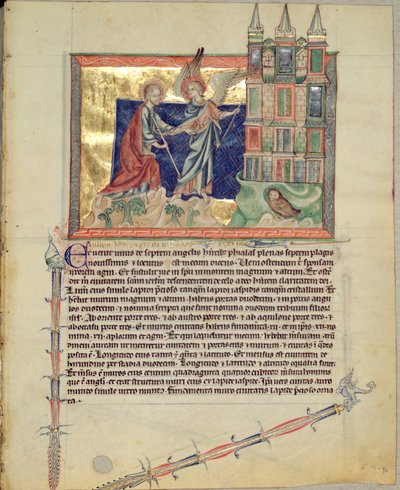 Et venit unus de septem angelis habentib phialas plenas septem plagis
nouissimis et locutus est mecum dicens. Veni ostendam sponsam
uxorem agni. Et sustulit me in spu in montem magnum et altum. Et oste
dit civitatem scam descendentem de celo a deo habentem claritatem dei.
Lumen eius simile lapidi precioso tanquam lapidi iaspidis sicut cristallum. Et
habebat murum magnum et altum. habens portas duodecim. in portis angu
los duodecim. et nomina scripta que sunt nomina duodecim tribuum filior
israel. Ab oriente porte tres. ab austro porte tres. et
ab occasu porte tres. Et murus civitatis habens fundamenta xii. et in ipis xii no
mina. xii aplorum et agni. Et qui loquebatur mecum. habebat mensuram arun
dineam auream ut metiretur civitatem et portas eius et murum. et civitas
posita e. Longitudo eius tanta e quanta et latitudo. Et mensus est civitatem de
harundine per stadia duodecim. Longitudo et latitudo et altitudo equalia sunt.
Et mensus e muros eius centum quadraginta quatuor cubitorum mensura hominis
que e angeli. et erat structura muri eius ex lapide iaspide. Ipsa vero civitas auro
mundo simile vitro mundo. Fundamenta muri civitatis lapide precioso orna
ta.